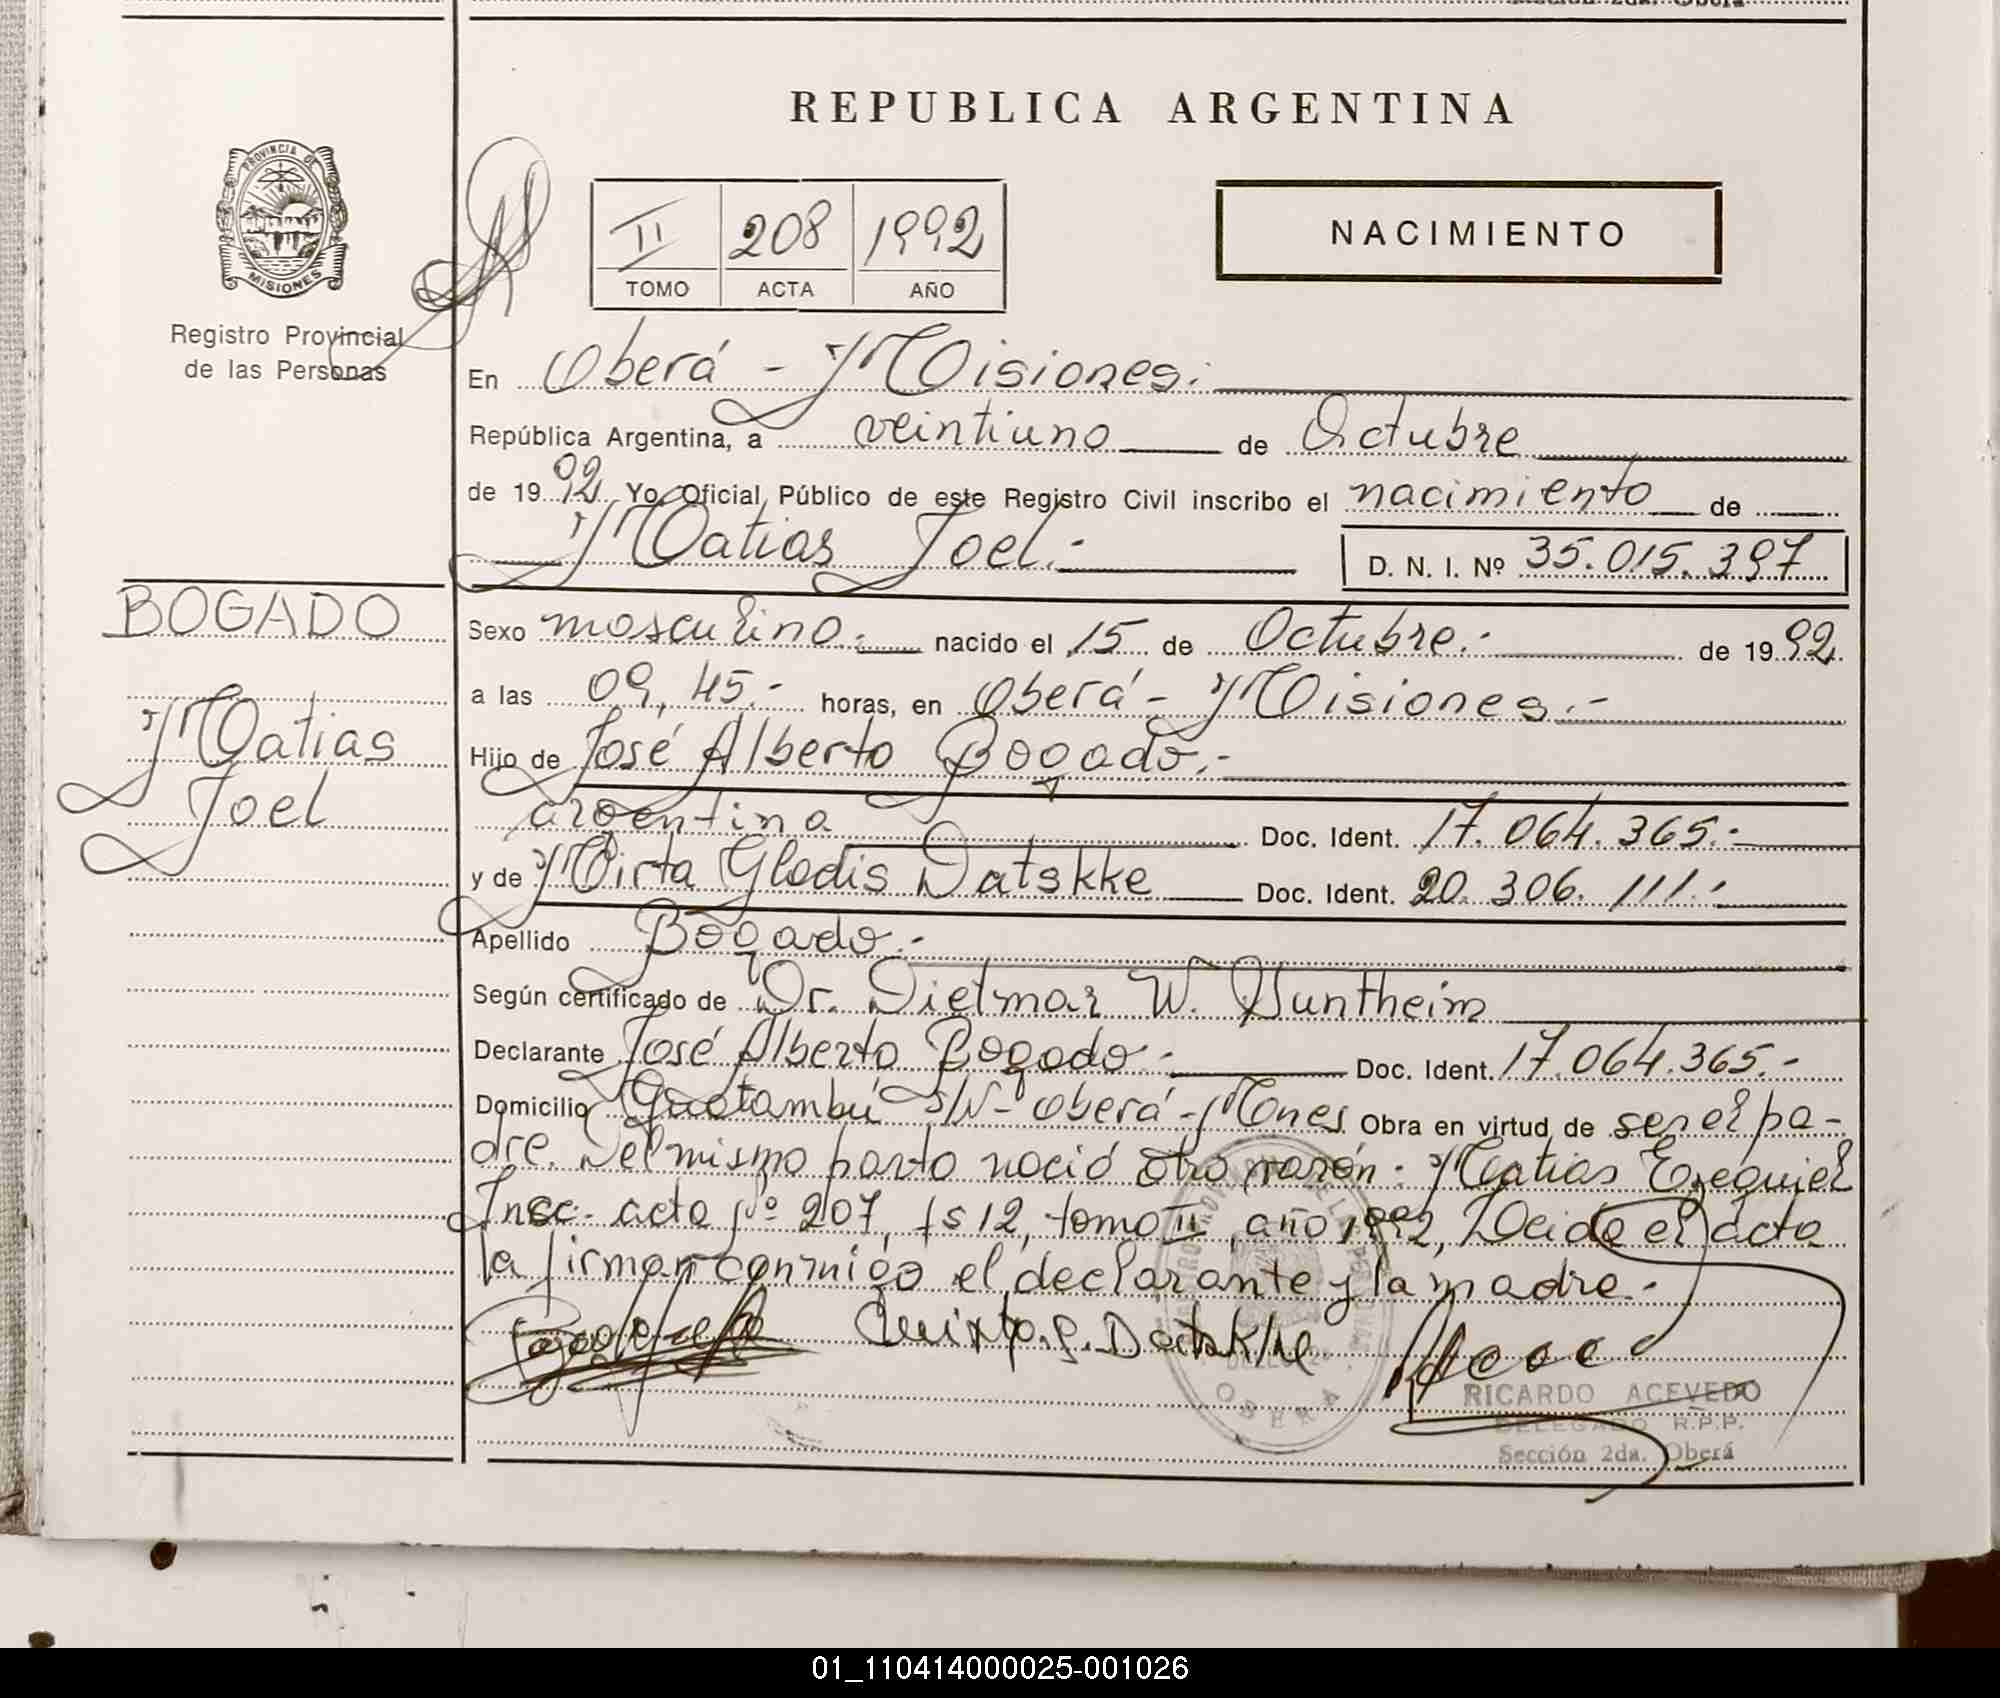 REPUBLICA ARGENTINA
PROVINCIA DE
MISIONES
Registro Provincial
de las Personas
II 208 1992
TOMO ACTA AÑO
NACIMIENTO
En Oberá - Misiones.
República Argentina, a veintiuno de Octubre
de 1992 Yo, Oficial Público de este Registro Civil inscribo el nacimiento de
Matias Joel.-
D. N. I. Nº 35.015.397
BOGADO
Matias
Joel
Sexo masculino.- nacido el 15 de Octubre.- de 1992
a las 09,45.- horas, en Oberá - Misiones.-
Hijo de José Alberto Bogado.-
argentina Doc. Ident. 17.064.365.-
y de Mirta Gladis Datskke Doc. Ident. 20.306.111.-
Apellido Bogado.-
Según certificado de Dr. Dietmar W. Guntheim
Declarante José Alberto Bogado.- Doc. Ident. 17.064.365.-
Domicilio Guatambú s/N - Oberá - Mnes Obra en virtud de ser el pa-
dre. Del mismo parto nació otro varón: Matias Ezequiel
Insc. acta Nº 207, fs 12, tomo II, año 1992, Leida el acta
la firman conmigo el declarante y la madre.-
OBERA
RICARDO ACEVEDO
DELEGADO R.P.P.
Sección 2da. Oberá
01_110414000025-001026